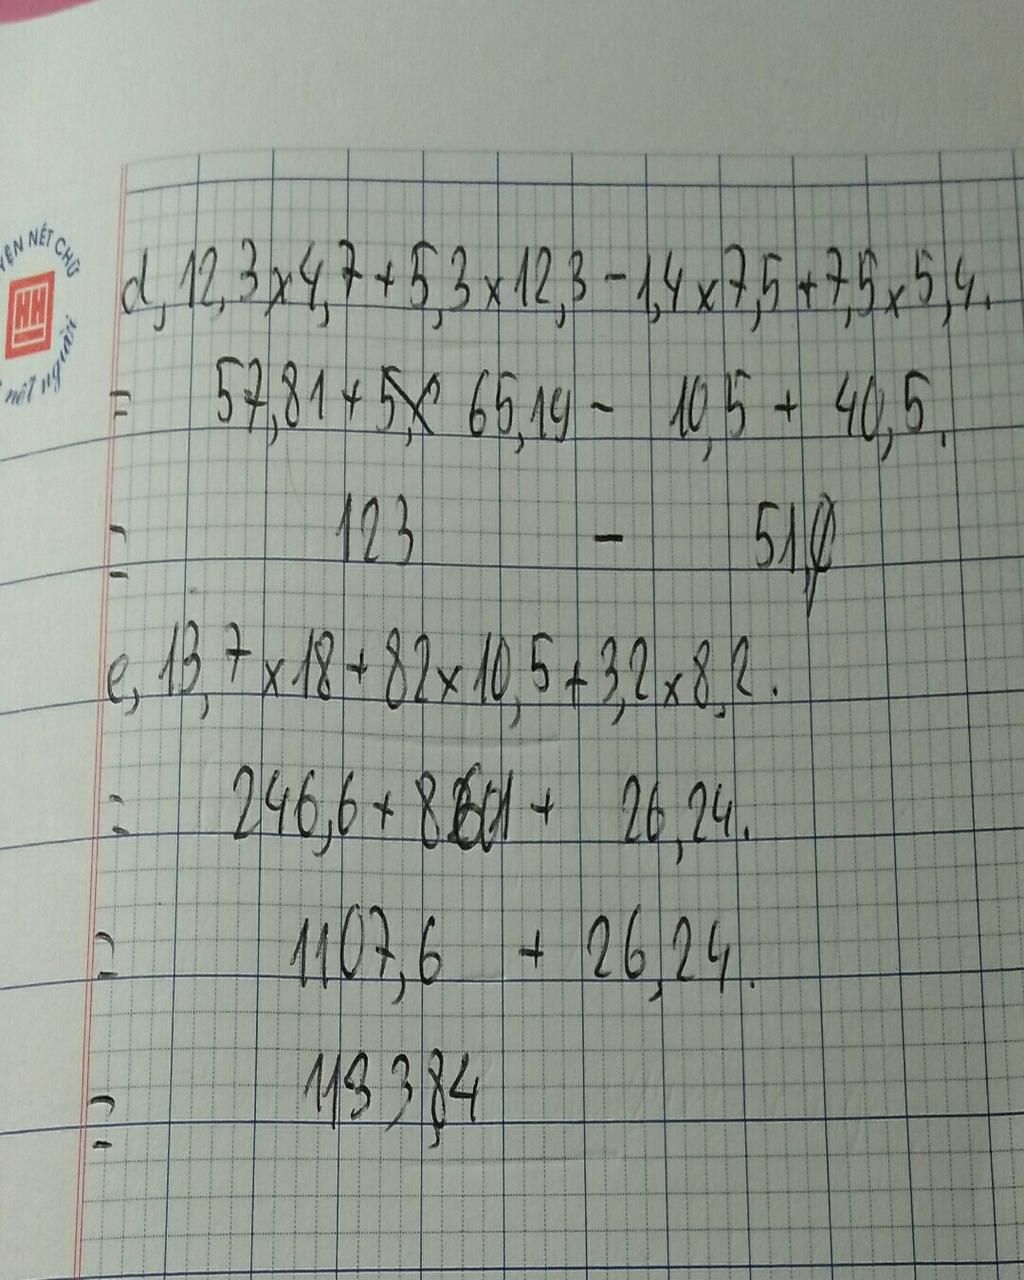 YỆN NÉT CHỮ
HH
nết người
d, 12,3 x 4,7 + 5,3 x 12,3 - 1,4 x 7,5 + 7,5 x 5,4.
= 57,81 + 65,19 - 10,5 + 40,5.
= 123 - 51
e, 13,7 x 18 + 82 x 10,5 + 3,2 x 8,2.
= 246,6 + 861 + 26,24.
= 1107,6 + 26,24.
= 1133,84